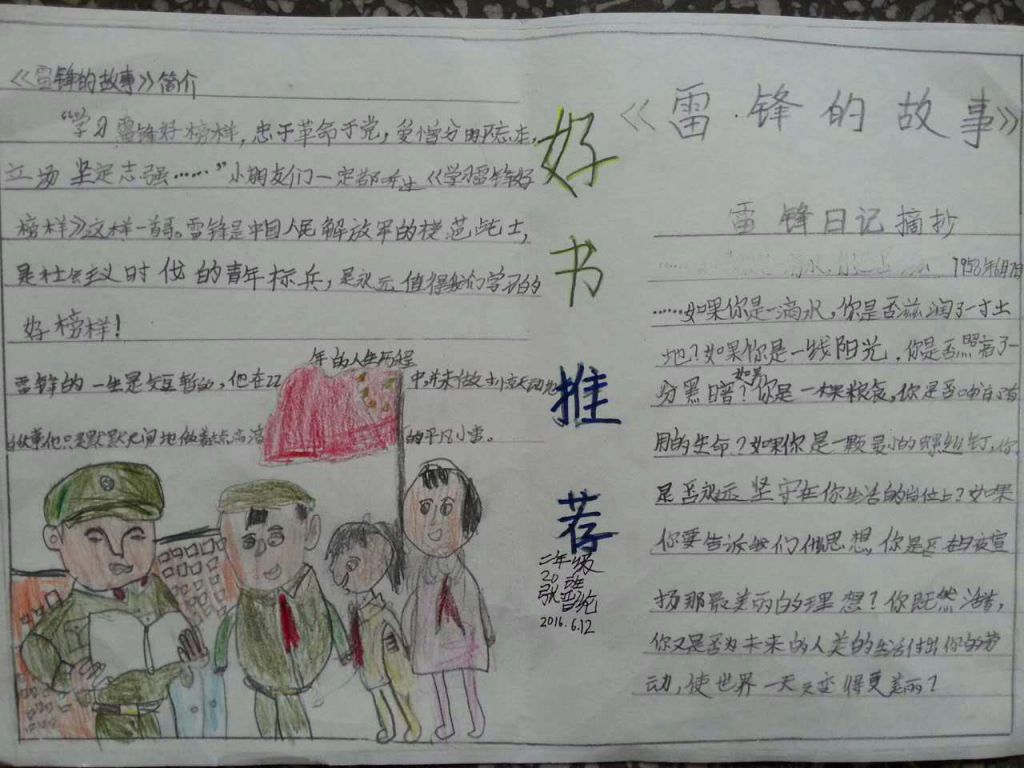 《雷锋的故事》简介
“学习雷锋好榜样,忠于革命于党,爱憎分明不忘本,
立场坚定志强……”小朋友们一定都会《学习雷锋好
榜样》这样一首歌。雷锋是中国人民解放军的模范战士,
是社会主义时代的青年标兵,是永远值得我们学习的
好榜样!
年的人生历程
雷锋的一生是短暂的,他在22中并未做
的故事他只是默默无闻地做着的平凡小事。
好书推荐
二年级
20班
2016.6.12
《雷·锋的故事》
雷锋日记摘抄
1958年6月7日
……如果你是一滴水,你是否滋润了一寸土
地?如果你是一线阳光,你是否照亮了一
分黑暗?如果你是一颗粮食,你是否哺育了有
用的生命?如果你是一颗最小的螺丝钉,你
是否永远坚守在你生活的岗位上?如果
你要告诉我们什么思想,你是否在日夜宣
扬那最美丽的理想?你既然活着,
你又是否为未来的人类的生活付出你的劳
动,使世界一天天变得更美丽?